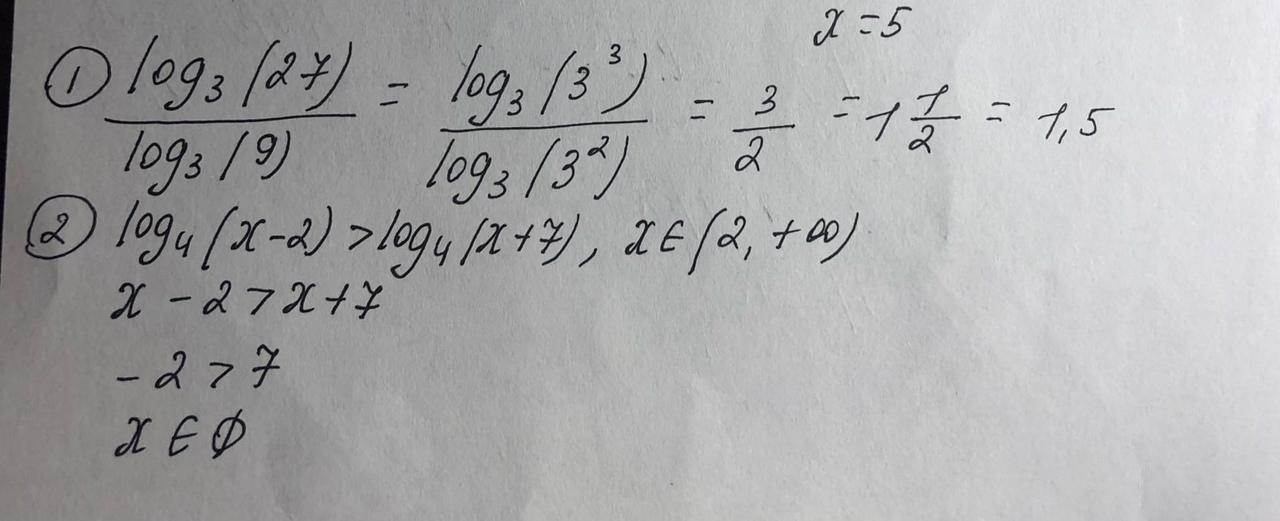 x = 5
① log₃(27)/log₃(9) = log₃(3³)/log₃(3²) = 3/2 = 1 1/2 = 1,5
② log₄(x-2) > log₄(x+7), x ∈ (2, +∞)
x - 2 > x + 7
- 2 > 7
x ∈ ∅